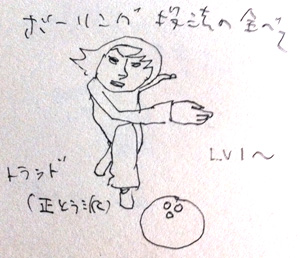 ボーリング 投法の全べて
LV1〜
トラッド
(正とう派)